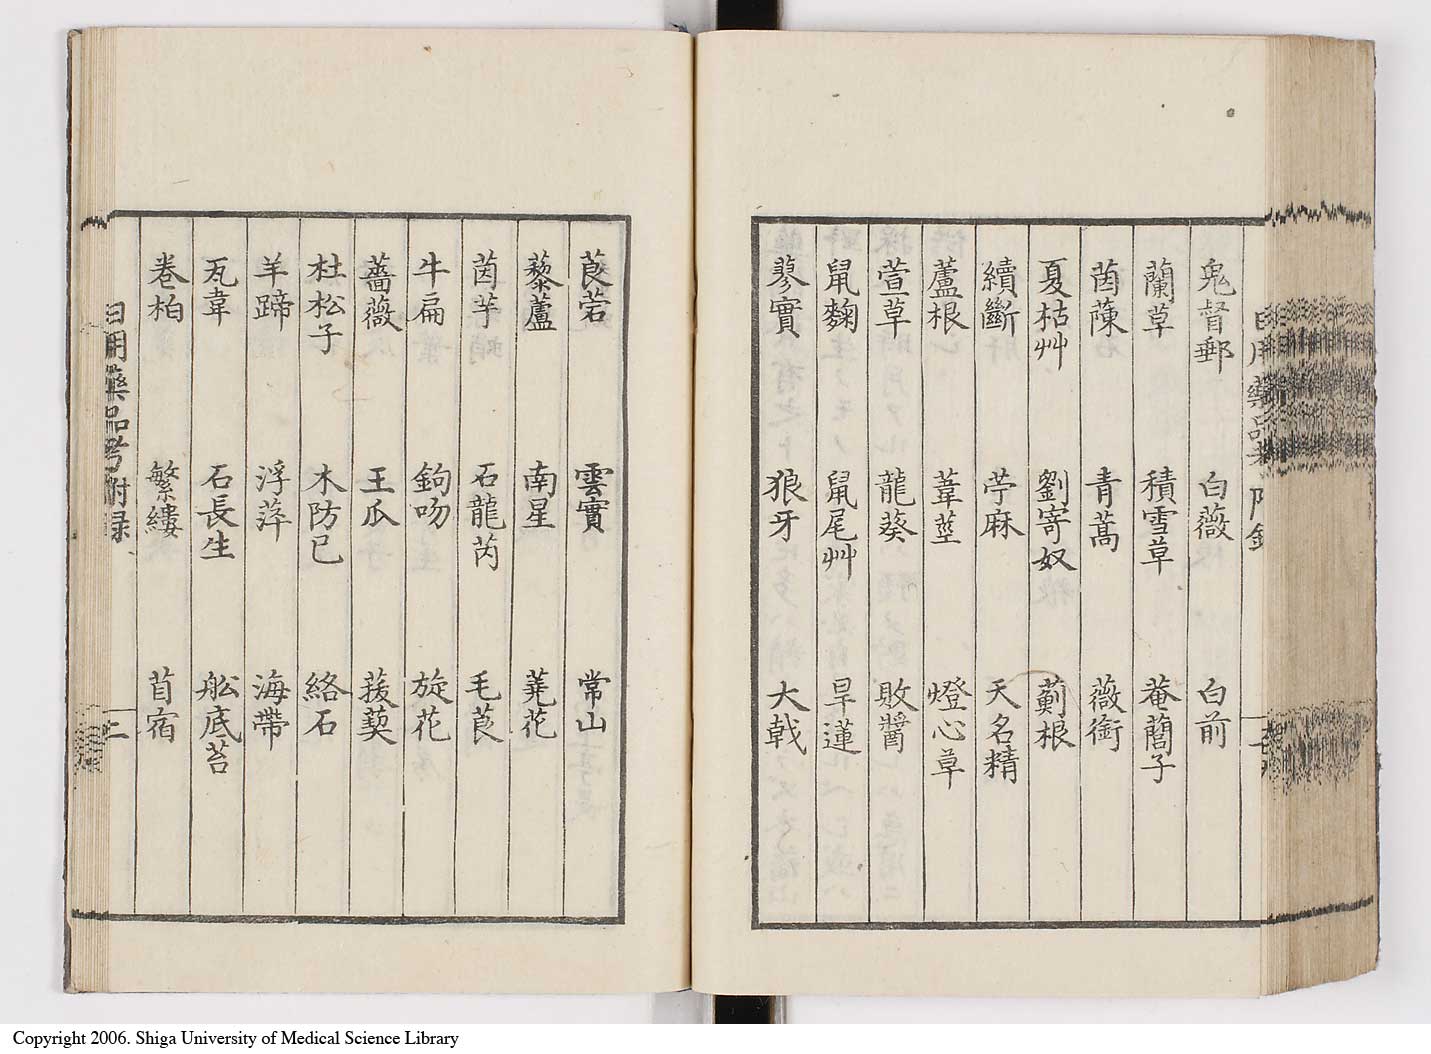 鬼督郵 白薇 白前
蘭草 積雪草 菴䕡子
茵蔯 青蒿 薇銜
夏枯艸 劉寄奴 薊根
續斷 苧麻 天名精
蘆根 葦莖 燈心草
萱草 龍葵 敗醬
鼠麴 鼠尾艸 旱蓮
蓼實 狼牙 大戟
莨菪 雲實 常山
藜蘆 南星 蕘花
茵芋 石龍芮 毛莨
牛扁 鉤吻 旋花
薔薇 王瓜 菝葜
杜松子 木防已 絡石
羊蹄 浮萍 海帶
瓦韋 石長生 舩底苔
卷柏 繁縷 苜宿
日用藥品考附録 二
Copyright 2006. Shiga University of Medical Science Library